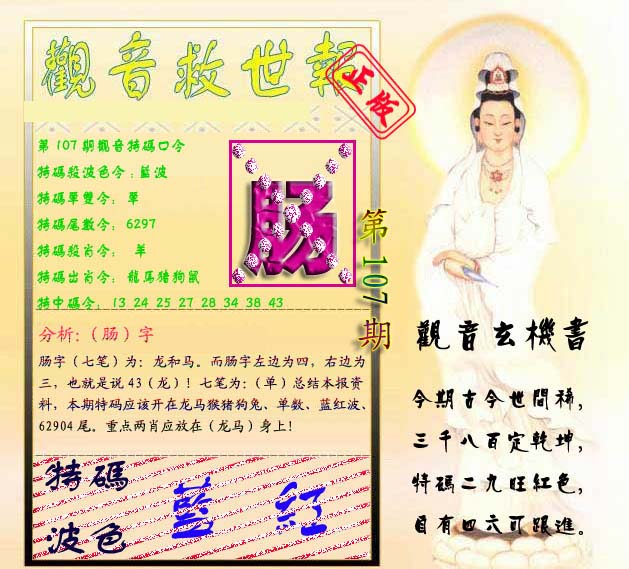 觀音救世報
正版
第107期觀音特碼口令
特碼殺波色令：藍波
特碼單雙令： 單
特碼尾數令： 6297
特碼殺肖令： 單
特碼出肖令： 龍馬猪狗鼠
特中碼令： 13 24 25 27 28 34 38 43
肠
第107期
分析：（肠）字
肠字（七笔）为：龙和马。而肠字左边为四，右边为
三，也就是说43（龙）！七笔为：（单）总结本报资
料，本期特码应该开在龙马猴猪狗兔、单数、蓝红波、
62904尾。重点两肖应放在（龙马）身上！
特碼
波色
藍 紅
觀音玄機書
今期古今世間稀，
三千八百定乾坤，
特碼二九旺紅色，
自有四六可跟進。